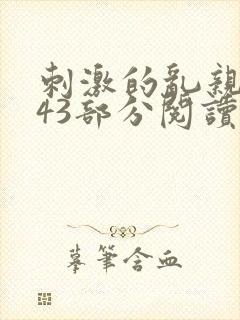 刺激的亂親
43部分閱讀
摹筆含血